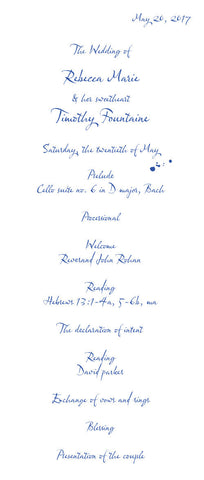 May 20, 2017
The Wedding of
Rebecca Marie
& her sweetheart
Timothy Fountaine
Saturday, the twentieth of May
Prelude
Cello suite no. 6 in D major, Bach
Processional
Welcome
Reverand John Rohan
Reading
Hebrews 13:1-4a, 5-6b,
The declaration of intent
Reading
David parker
Exchange of vows and rings
Blessing
Presentation of the couple